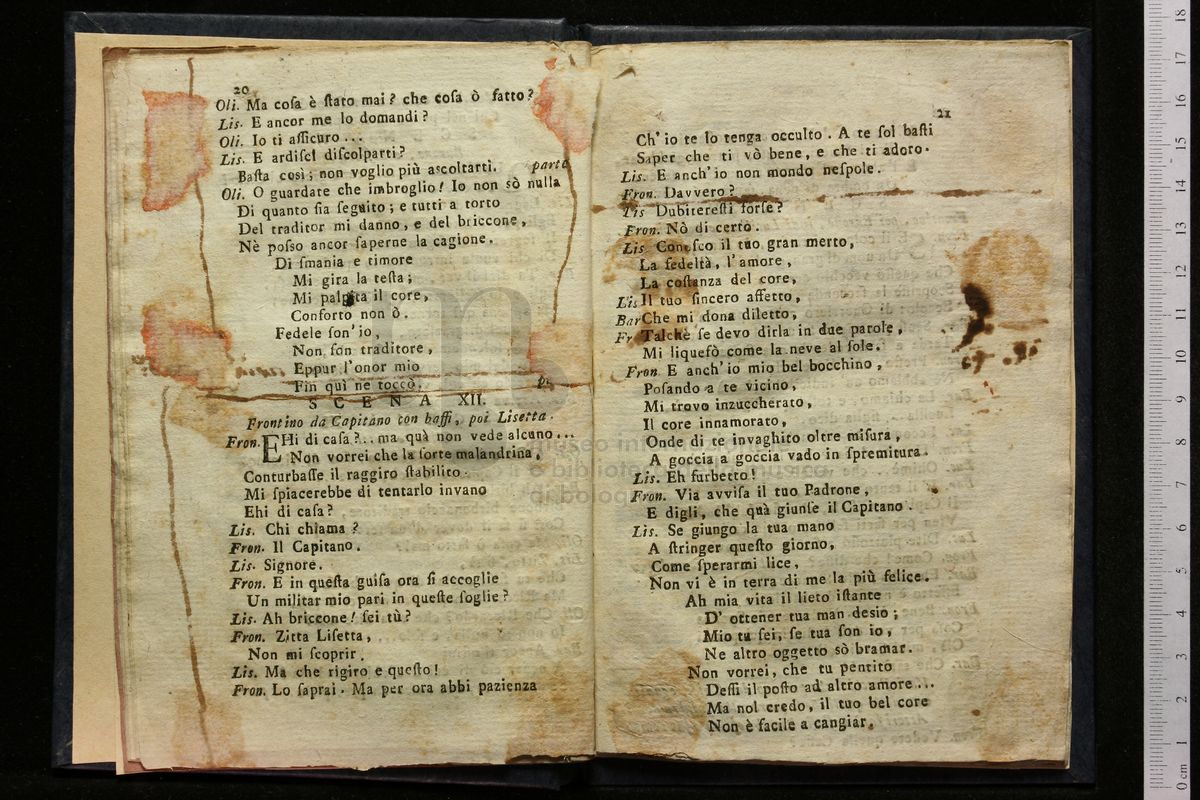 20
Oli. Ma coſa è ſtato mai? che coſa ò fatto?
Lis. E ancor me lo domandi?
Oli. Io ti aſſicuro...
Lis. E ardiſci diſcolparti?
Baſta così; non voglio più aſcoltarti. parte
Oli. O guardate che imbroglio! Io non sò nulla
Di quanto ſia ſeguito; e tutti a torto
Del traditor mi danno, e del briccone,
Nè poſso ancor ſaperne la cagione.
Di ſmania e timore
Mi gira la teſta;
Mi palpita il core,
Conforto non ò.
Fedele ſon' io,
Non ſon traditore,
Eppur l'onor mio
Fin quì ne toccò.
SCENA XII.
Frontino da Capitano con baffi, poi Lisetta.
Fron. EHi di caſa?... ma quà non vede alcuno...
Non vorrei che la ſorte malandrina,
Conturbaſſe il raggiro ſtabilito.
Mi ſpiacerebbe di tentarlo invano
Ehi di caſa?
Lis. Chi chiama?
Fron. Il Capitano.
Lis. Signore.
Fron. E in queſta guiſa ora ſi accoglie
Un militar mio pari in queſte ſoglie?
Lis. Ah briccone! ſei tù?
Fron. Zitta Liſetta,
Non mi ſcoprir.
Lis. Ma che rigiro e queſto!
Fron. Lo ſaprai. Ma per ora abbi pazienza
21
Ch' io te lo tenga occulto. A te ſol baſti
Saper che ti vò bene, e che ti adoro.
Lis. E anch' io non mondo neſpole.
Fron. Davvero?
Lis Dubitereſti forſe?
Fron. Nò di certo.
Lis Conoſco il tuo gran merto,
La fedeltà, l'amore,
La coſtanza del core,
Lis Il tuo ſincero affetto,
Bar Che mi dona diletto,
Fr Talchè ſe devo dirla in due parole,
Mi liquefò come la neve al ſole.
Fron E anch' io mio bel bocchino,
Poſando a te vicino,
Mi trovo inzuccherato,
Il core innamorato,
Onde di te invaghito oltre miſura,
A goccia a goccia vado in ſpremitura.
Lis. Eh furbetto!
Fron. Via avviſa il tuo Padrone,
E digli, che quà giunſe il Capitano.
Lis. Se giungo la tua mano
A ſtringer queſto giorno,
Come ſperarmi lice,
Non vi è in terra di me la più felice.
Ah mia vita il lieto iſtante
D' ottener tua man desio;
Mio tu ſei, ſe tua ſon io,
Ne altro oggetto sò bramar.
Non vorrei, che tu pentito
Deſſi il poſto ad altro amore...
Ma nol credo, il tuo bel core
Non è facile a cangiar.